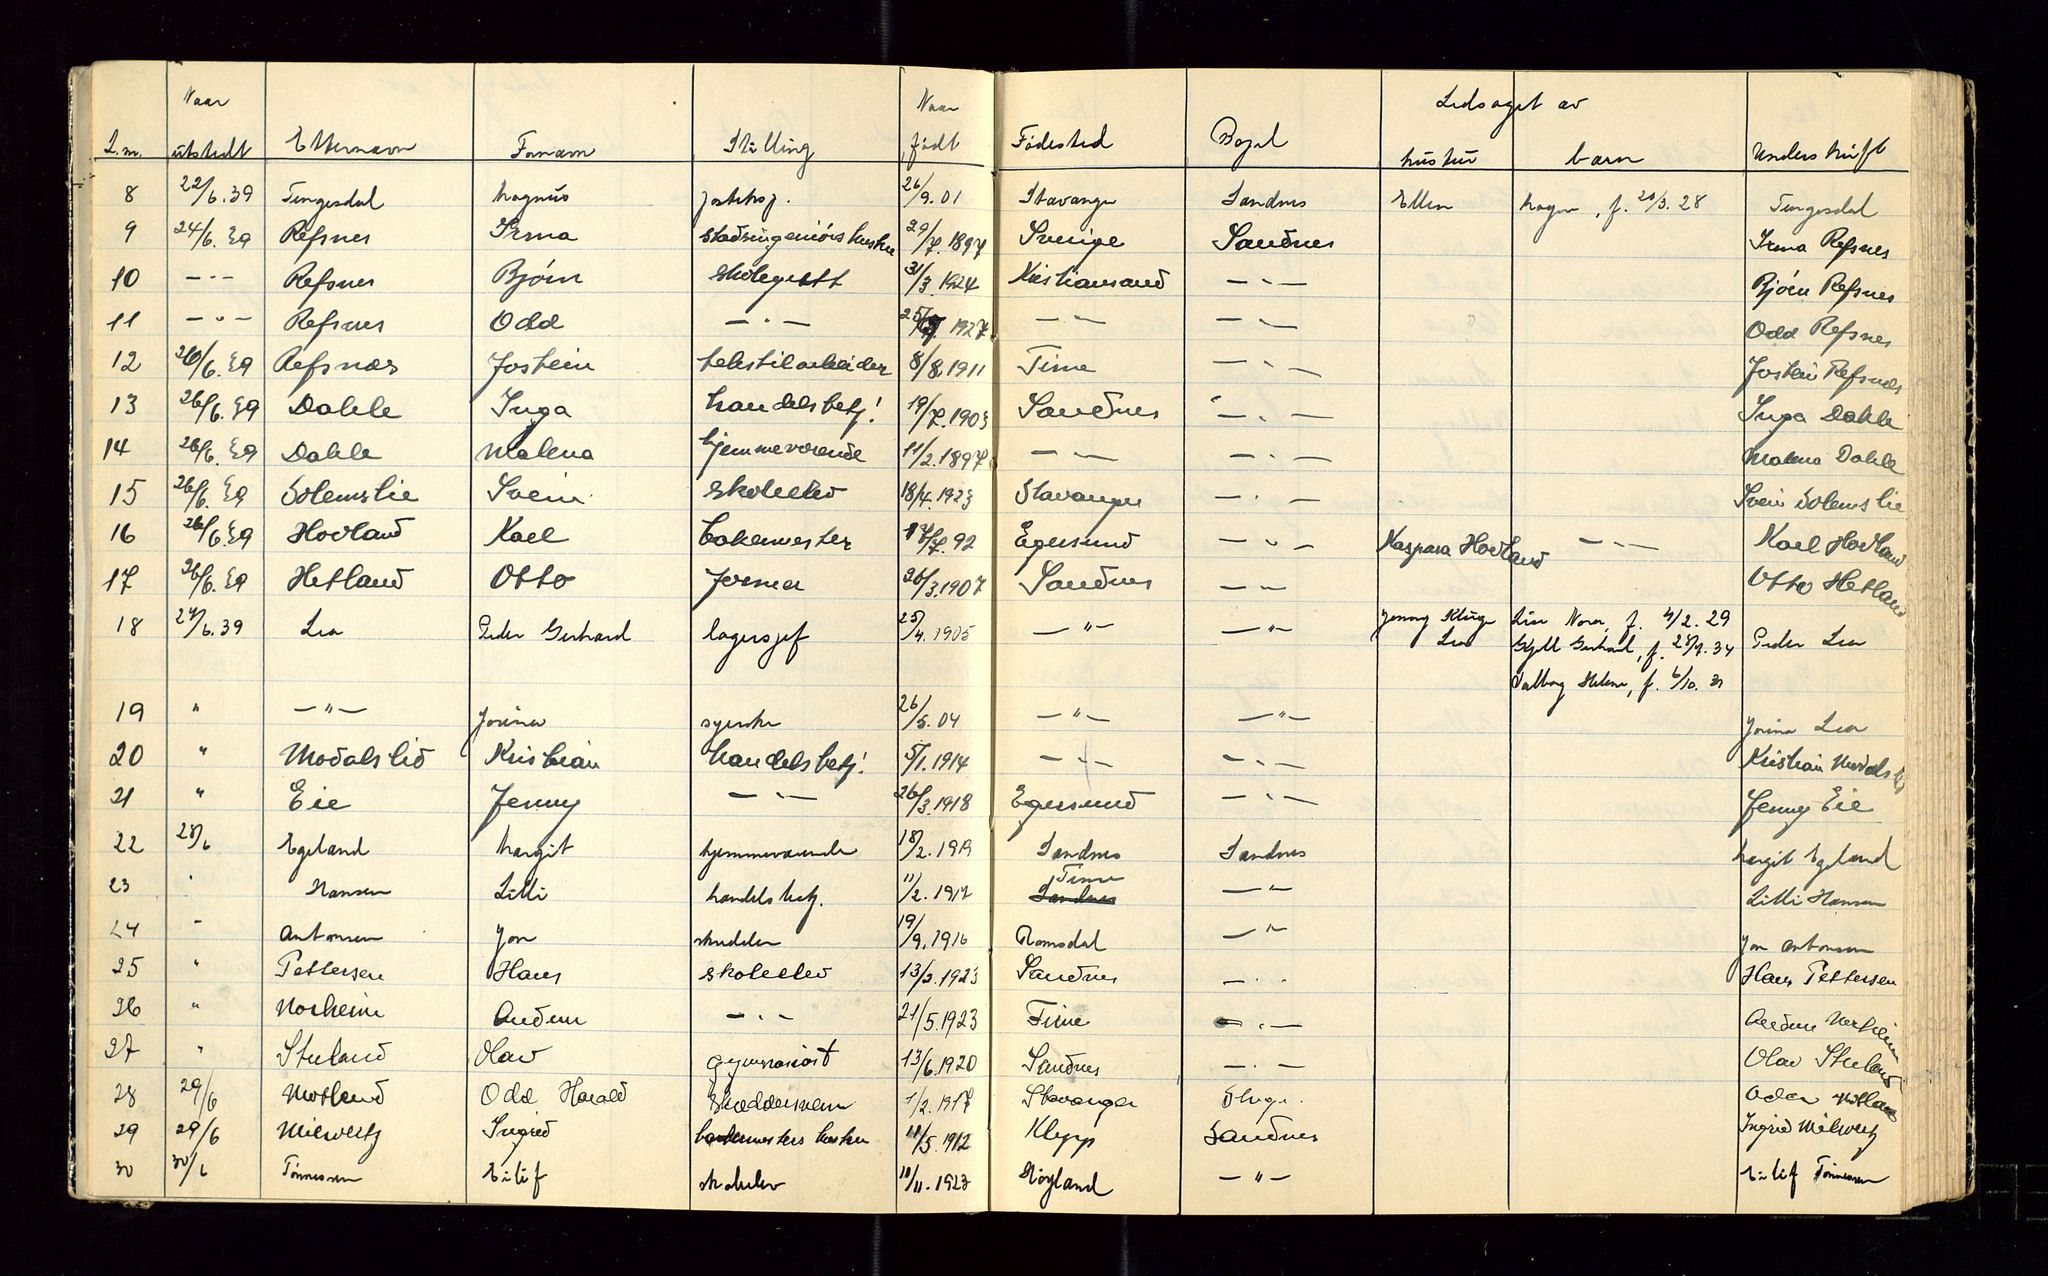 Naar Naar Ledsaget av
L.nr. utstedt Etternavn Fornavn Stilling født Fødested Bopel hustru barn Underskrift
8 22/6.39 Tengesdal Magnus 26/9.01 Stavanger Sandnes Ellen f. 20/3.28 Tengesdal
9 24/6.39 Refsnes Irma stadsingeniørs hustru 29/7.1897 Sverige Sandnes Irma Refsnes
10 — " — Refsnes Bjørn skolegutt 31/3.1924 Kristiansand — " — Bjørn Refsnes
11 — " — Refsnes Odd — " — 1927 — " — — " — Odd Refsnes
12 26/6.39 Refsnes Jostein tekstilarbeider 8/8.1911 Time — " — Jostein Refsnes
13 26/6.39 Dahle Inga handelsbetj. 19/7.1903 Sandnes — " — Inga Dahle
14 26/6.39 Dahle Malena hjemmeværende 11/2.1897 — " — — " — Malena Dahle
15 26/6.39 Solemslie Svein skoleelev 18/4.1923 Stavanger — " — Svein Solemslie
16 26/6.39 Hovland Karl bakermester 17/7.92 Egersund — " — Kaspara Hovland — " — Karl Hovland
17 26/6.39 Hetland Otto former 26/3.1907 Sandnes — " — Otto Hetland
18 27/6.39 Lea Peder Gerhard lagersjef 25/4.1905 — " — — " — Jenny Kluge Lise Nora, f. 4/2.29 Peder Lea
Lea Kjell Gerhard, f. 34
Valborg Helene, f. 6/10.31
19 " — " — Jorina syerske 26/5.04 — " — — " — Jorina Lea
20 " Modalslid Kristian handelsbetj. 5/1.1914 — " — — " — Kristian Modalslid
21 " Eie Jenny — " — 26/3.1918 Egersund — " — Jenny Eie
22 28/6 Egeland Margit hjemmeværende 18/2.1919 Sandnes Sandnes Margit Egeland
23 " Hansen Lilli handelsbetj. 11/2.1917 Time Sandnes — " Lilli Hansen
24 " Antonsen Jon 19/9.1916 Romsdal — " Jon Antonsen
25 " Pettersen Hans skoleelev 13/2.1923 Sandnes — " Hans Pettersen
26 " Norheim Audun — " — 21/5.1923 Time — " — Audun Norheim
27 " Stuland Olav gymnasiast 13/6.1920 Sandnes — " — Olav Stuland
28 29/6 Motland Odd Harald skreddersvenn 1/2.1917 Stavanger Odd H Motland
29 29/6 Milvertz Ingrid bakermesters hustru 11/5.1912 Klepp Sandnes Ingrid Milvertz
30 30/6 Tønnessen Eilif skoleelev 10/11.1923 Høyland — " — Eilif Tønnessen